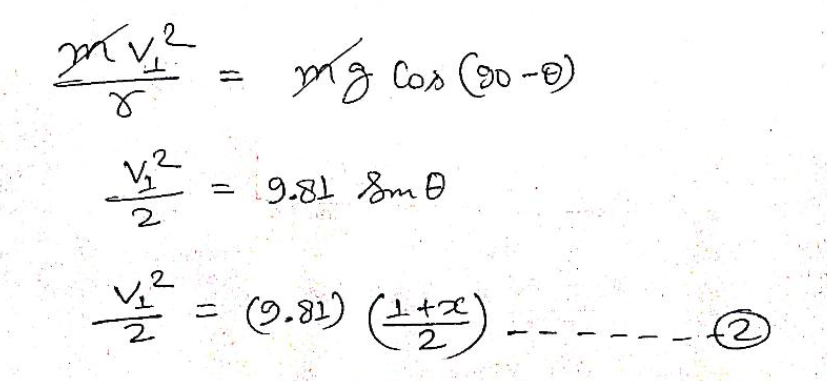 m v₁² / r = mg Cos (90 - θ)
v₁² / 2 = 9.81 Sin θ
v₁² / 2 = (9.81) ((1 + x) / 2) - - - - - - - ②